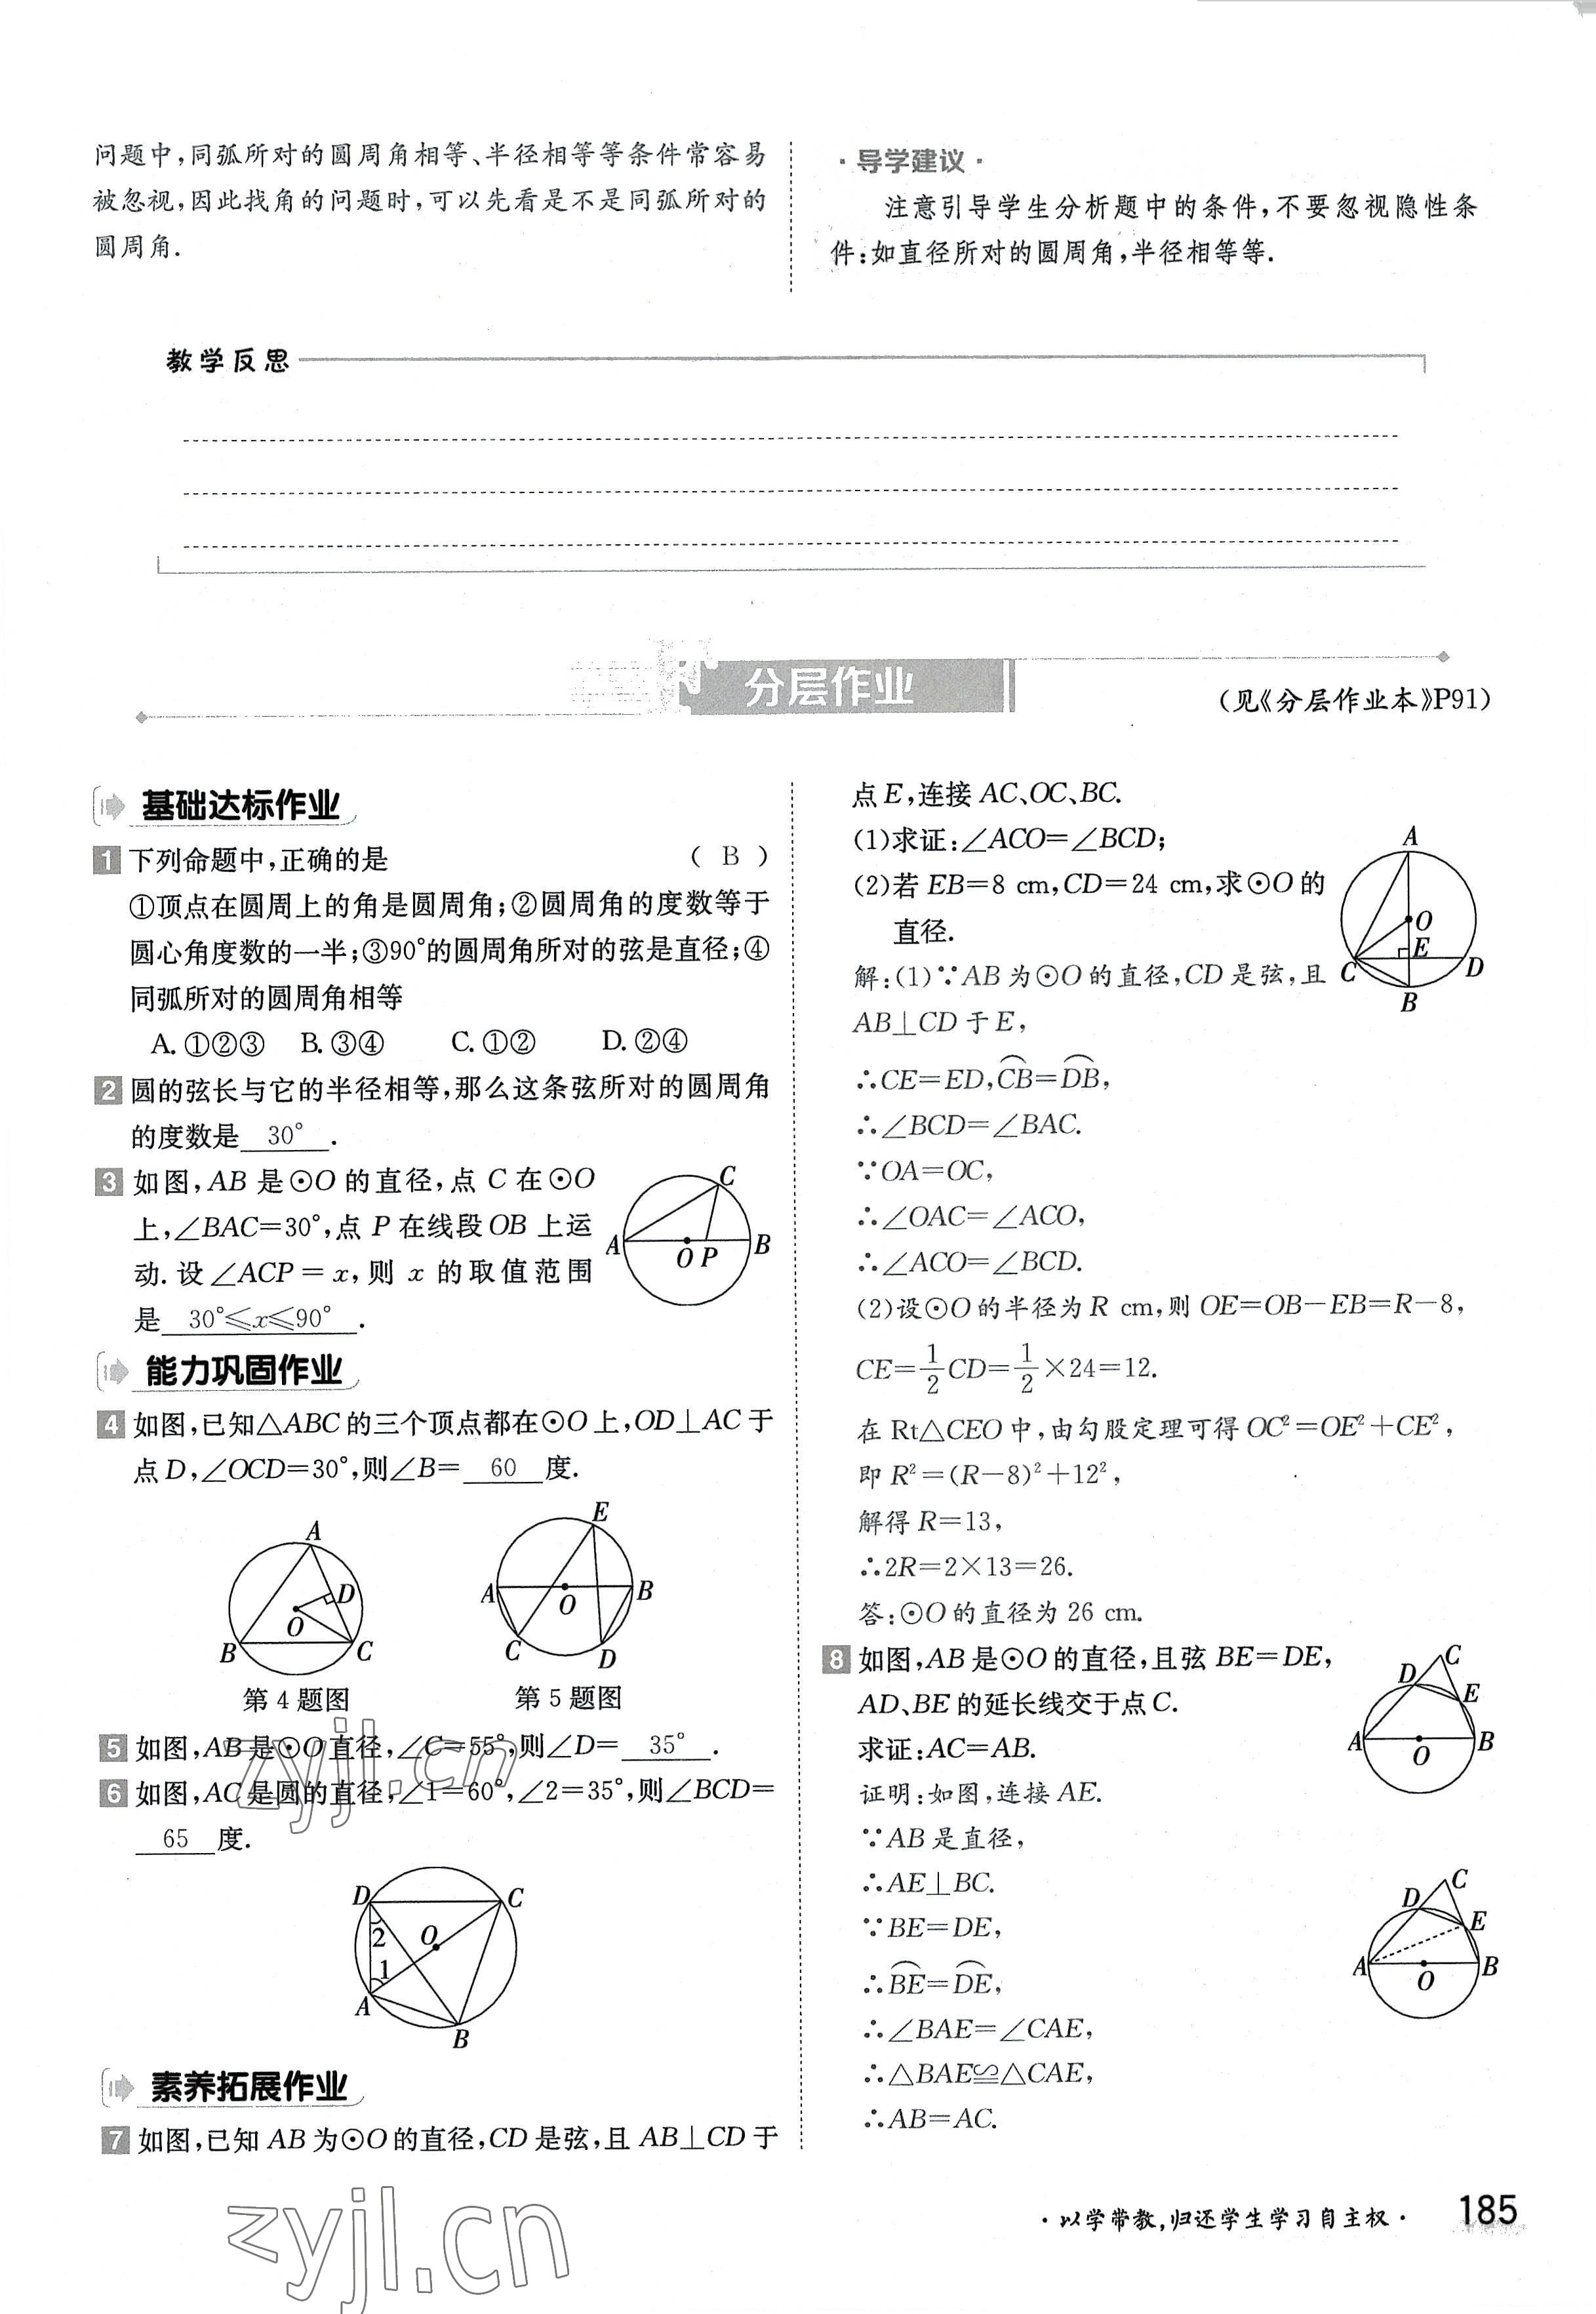 问题中,同弧所对的圆周角相等、半径相等等条件常容易
被忽视,因此找角的问题时,可以先看是不是同弧所对的
圆周角.
·导学建议·
注意引导学生分析题中的条件,不要忽视隐性条
件:如直径所对的圆周角,半径相等等.
教学反思
分层作业
(见《分层作业本》P91)
基础达标作业
1 下列命题中,正确的是 ( B )
①顶点在圆周上的角是圆周角;②圆周角的度数等于
圆心角度数的一半;③90°的圆周角所对的弦是直径;④
同弧所对的圆周角相等
A.①②③ B.③④ C.①② D.②④
2 圆的弦长与它的半径相等,那么这条弦所对的圆周角
的度数是 30° .
3 如图,AB 是⊙O 的直径,点 C 在⊙O
上,∠BAC=30°,点 P 在线段OB 上运
动.设∠ACP=x,则 x 的取值范围
是 30°≤x≤90° .
A O P B C
能力巩固作业
4 如图,已知△ABC的三个顶点都在⊙O上,OD⊥AC于
点D,∠OCD=30°,则∠B= 60 度.
A D O B C
第4题图
E A O B C D
第5题图
5 如图,AB是⊙O直径,∠C=55°,则∠D= 35° .
6 如图,AC是圆的直径,∠1=60°,∠2=35°,则∠BCD=
65 度.
D C 2 O 1 A B
素养拓展作业
7 如图,已知AB为⊙O的直径,CD是弦,且AB⊥CD于
点E,连接AC、OC、BC.
(1)求证:∠ACO=∠BCD;
(2)若EB=8 cm,CD=24 cm,求⊙O的
直径.
A O E C D B
解:(1)∵AB为⊙O的直径,CD是弦,且
AB⊥CD于E,
∴CE=ED,⌒CB=⌒DB,
∴∠BCD=∠BAC.
∵OA=OC,
∴∠OAC=∠ACO,
∴∠ACO=∠BCD.
(2)设⊙O的半径为R cm,则OE=OB−EB=R−8,
CE=1/2CD=1/2×24=12.
在Rt△CEO中,由勾股定理可得OC²=OE²+CE²,
即R²=(R−8)²+12²,
解得R=13,
∴2R=2×13=26.
答:⊙O的直径为26 cm.
8 如图,AB是⊙O的直径,且弦BE=DE,
AD、BE的延长线交于点C.
求证:AC=AB.
C D E A O B
证明:如图,连接AE.
∵AB是直径,
∴AE⊥BC.
∵BE=DE,
∴⌒BE=⌒DE,
∴∠BAE=∠CAE,
∴△BAE≌△CAE,
∴AB=AC.
C D E A O B
zyjl.cn
zyjl.cn
·以学带教,归还学生学习自主权·
185